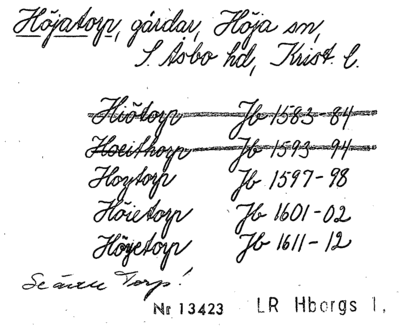 Höjatorp, gårdar, Höja sn,
S Åsbo hd, Krist. l.
Hiötorp Jb 1583-84
Hoeithorp Jb 1593-94
Hoytorp Jb 1597-98
Höietorp Jb 1601-02
Höyetorp Jb 1611-12
Se även Torp!
Nr 13423 LR Hborgs 1,